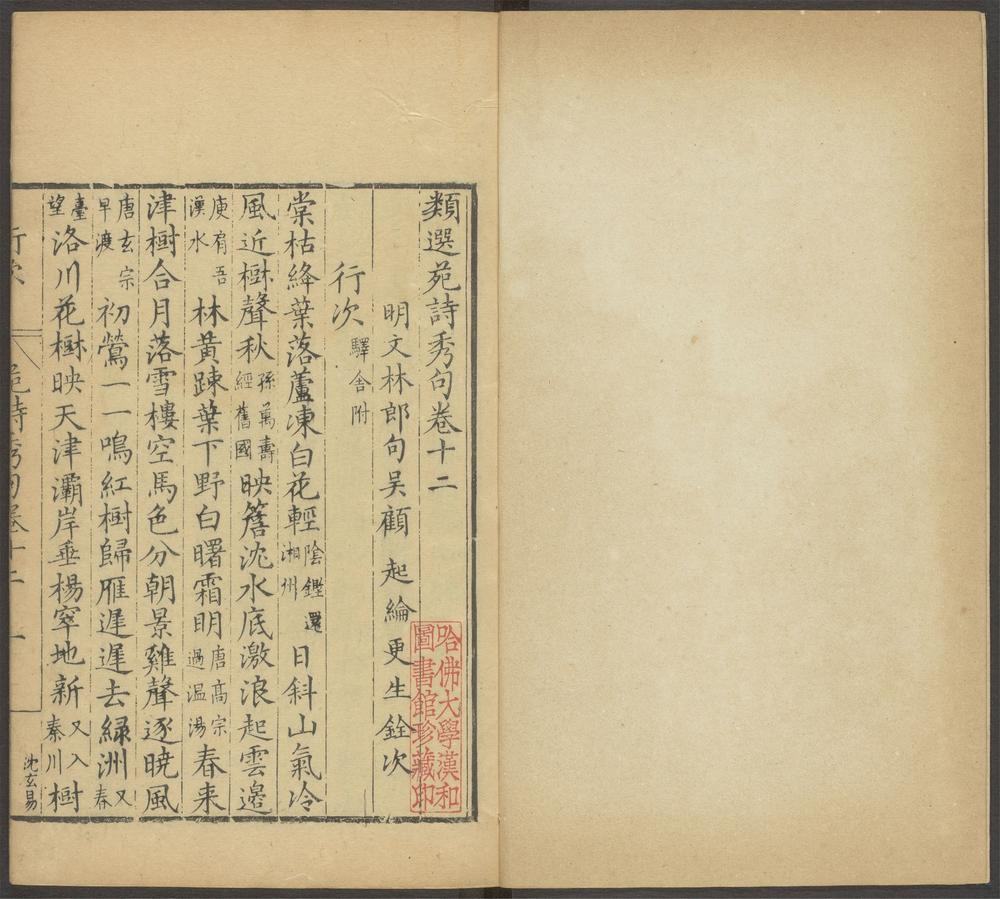 類選苑詩秀句卷十二
明文林郎句吴顧 起綸更生銓次
行次 驛舍附
棠枯絳葉落蘆凍白花輕 陰鏗還湘州 日斜山氣冷
風近樹聲秋 孫萬壽經舊國 映簷沈水底激浪起雲邊
庾肩吾漢水 林黄踈葉下野白曙霜明 唐高宗過温湯 春来
津樹合月落雪樓空馬色分朝景雞聲逐曉風
唐玄宗早渡 初鶯一一鳴紅樹歸雁遲遲去緑洲 又春
臺望 洛川花樹映天津灞岸垂楊窣地新 又入秦川 樹
沈玄易
行次 苑詩秀句卷十二 一
哈佛大學漢和
圖書館珍藏印